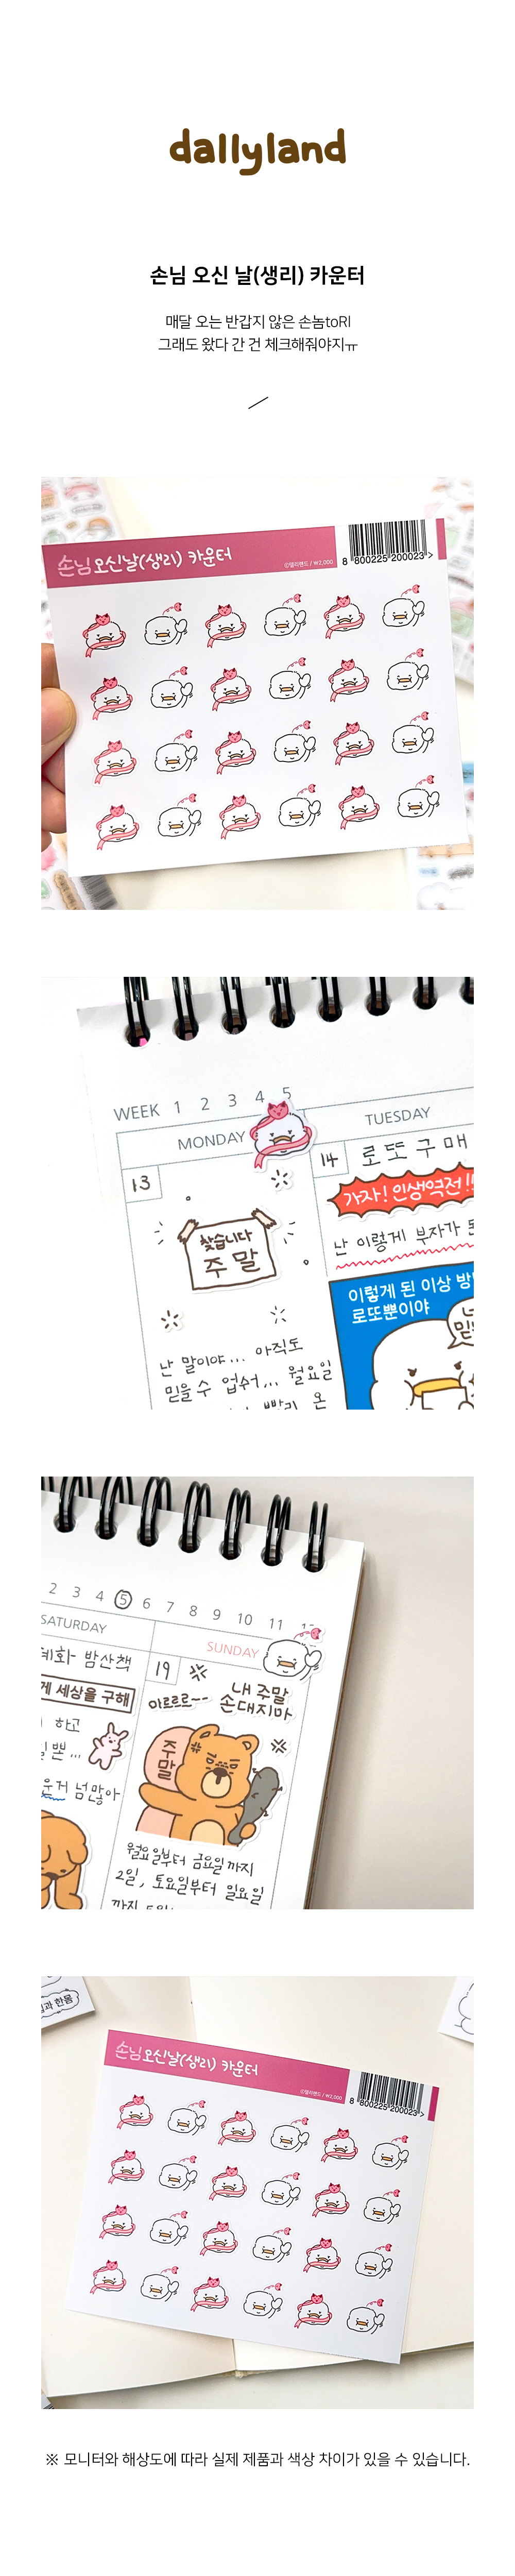 dallyland
손님 오신 날(생리) 카운터
매달 오는 반갑지 않은 손놈toRI
그래도 왔다 간 건 체크해줘야지ㅠ
손님오신날(생리) 카운터
ⓒ댈리랜드 / ₩2,000
8 800225 200023 >
WEEK 1 2 3 4 5
MONDAY
TUESDAY
13
14
로또구매
찾습니다
주말
가자! 인생역전!!
난 이렇게 부자가
이렇게 된 이상
로또뿐이야
난 말이야... 아직도
믿을수 업쉬... 월요일
2 3 4 5 6 7 8 9 10 11
SATURDAY
SUNDAY
밤산책
19
세상을 구해
하고
넘많아
으르르~~
내 주말
손대지마
주말
월요일부터 금요일까지
2일, 토요일부터 일요일
손님오신날(생리) 카운터
ⓒ댈리랜드 / ₩2,000
8 800225 200023 >
※ 모니터와 해상도에 따라 실제 제품과 색상 차이가 있을 수 있습니다.